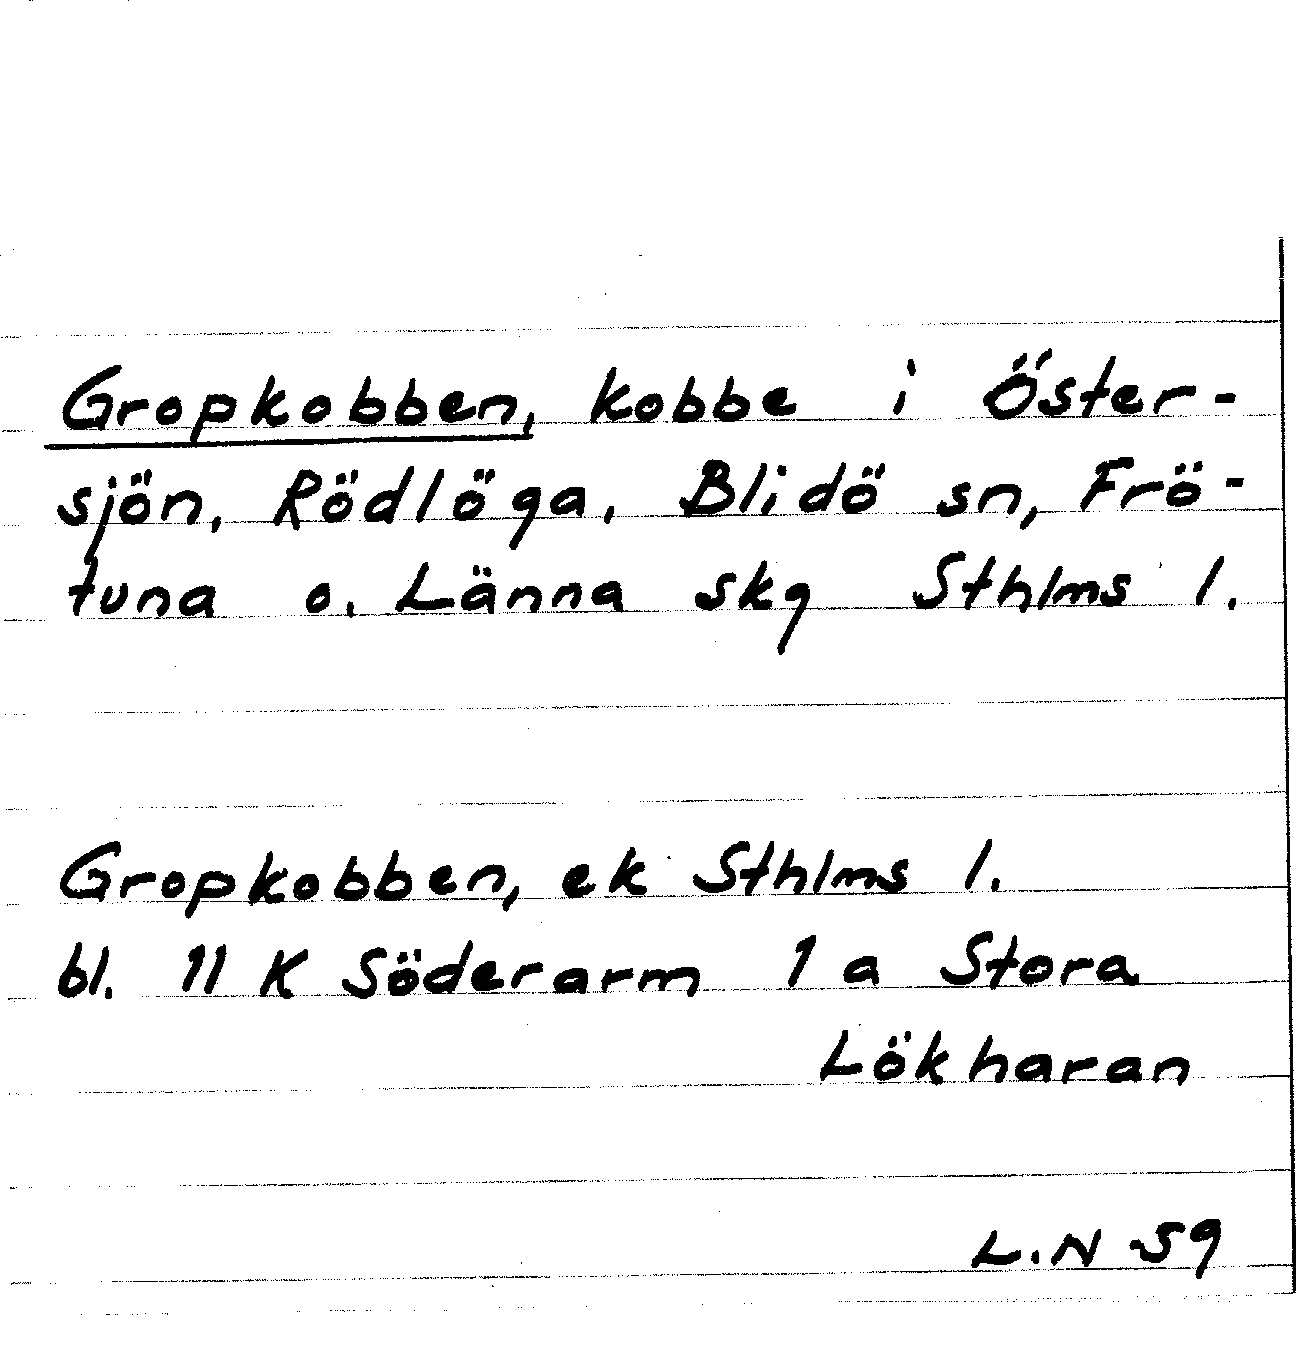 Gropkobben, kobbe i Öster-
sjön, Rödlöga, Blidö sn, Frö-
tuna o. Länna skg Sthlms l.
Gropkobben, ek Sthlms l.
bl. 11 K Söderarm 1 a Stora
Lökharan
L.N -59